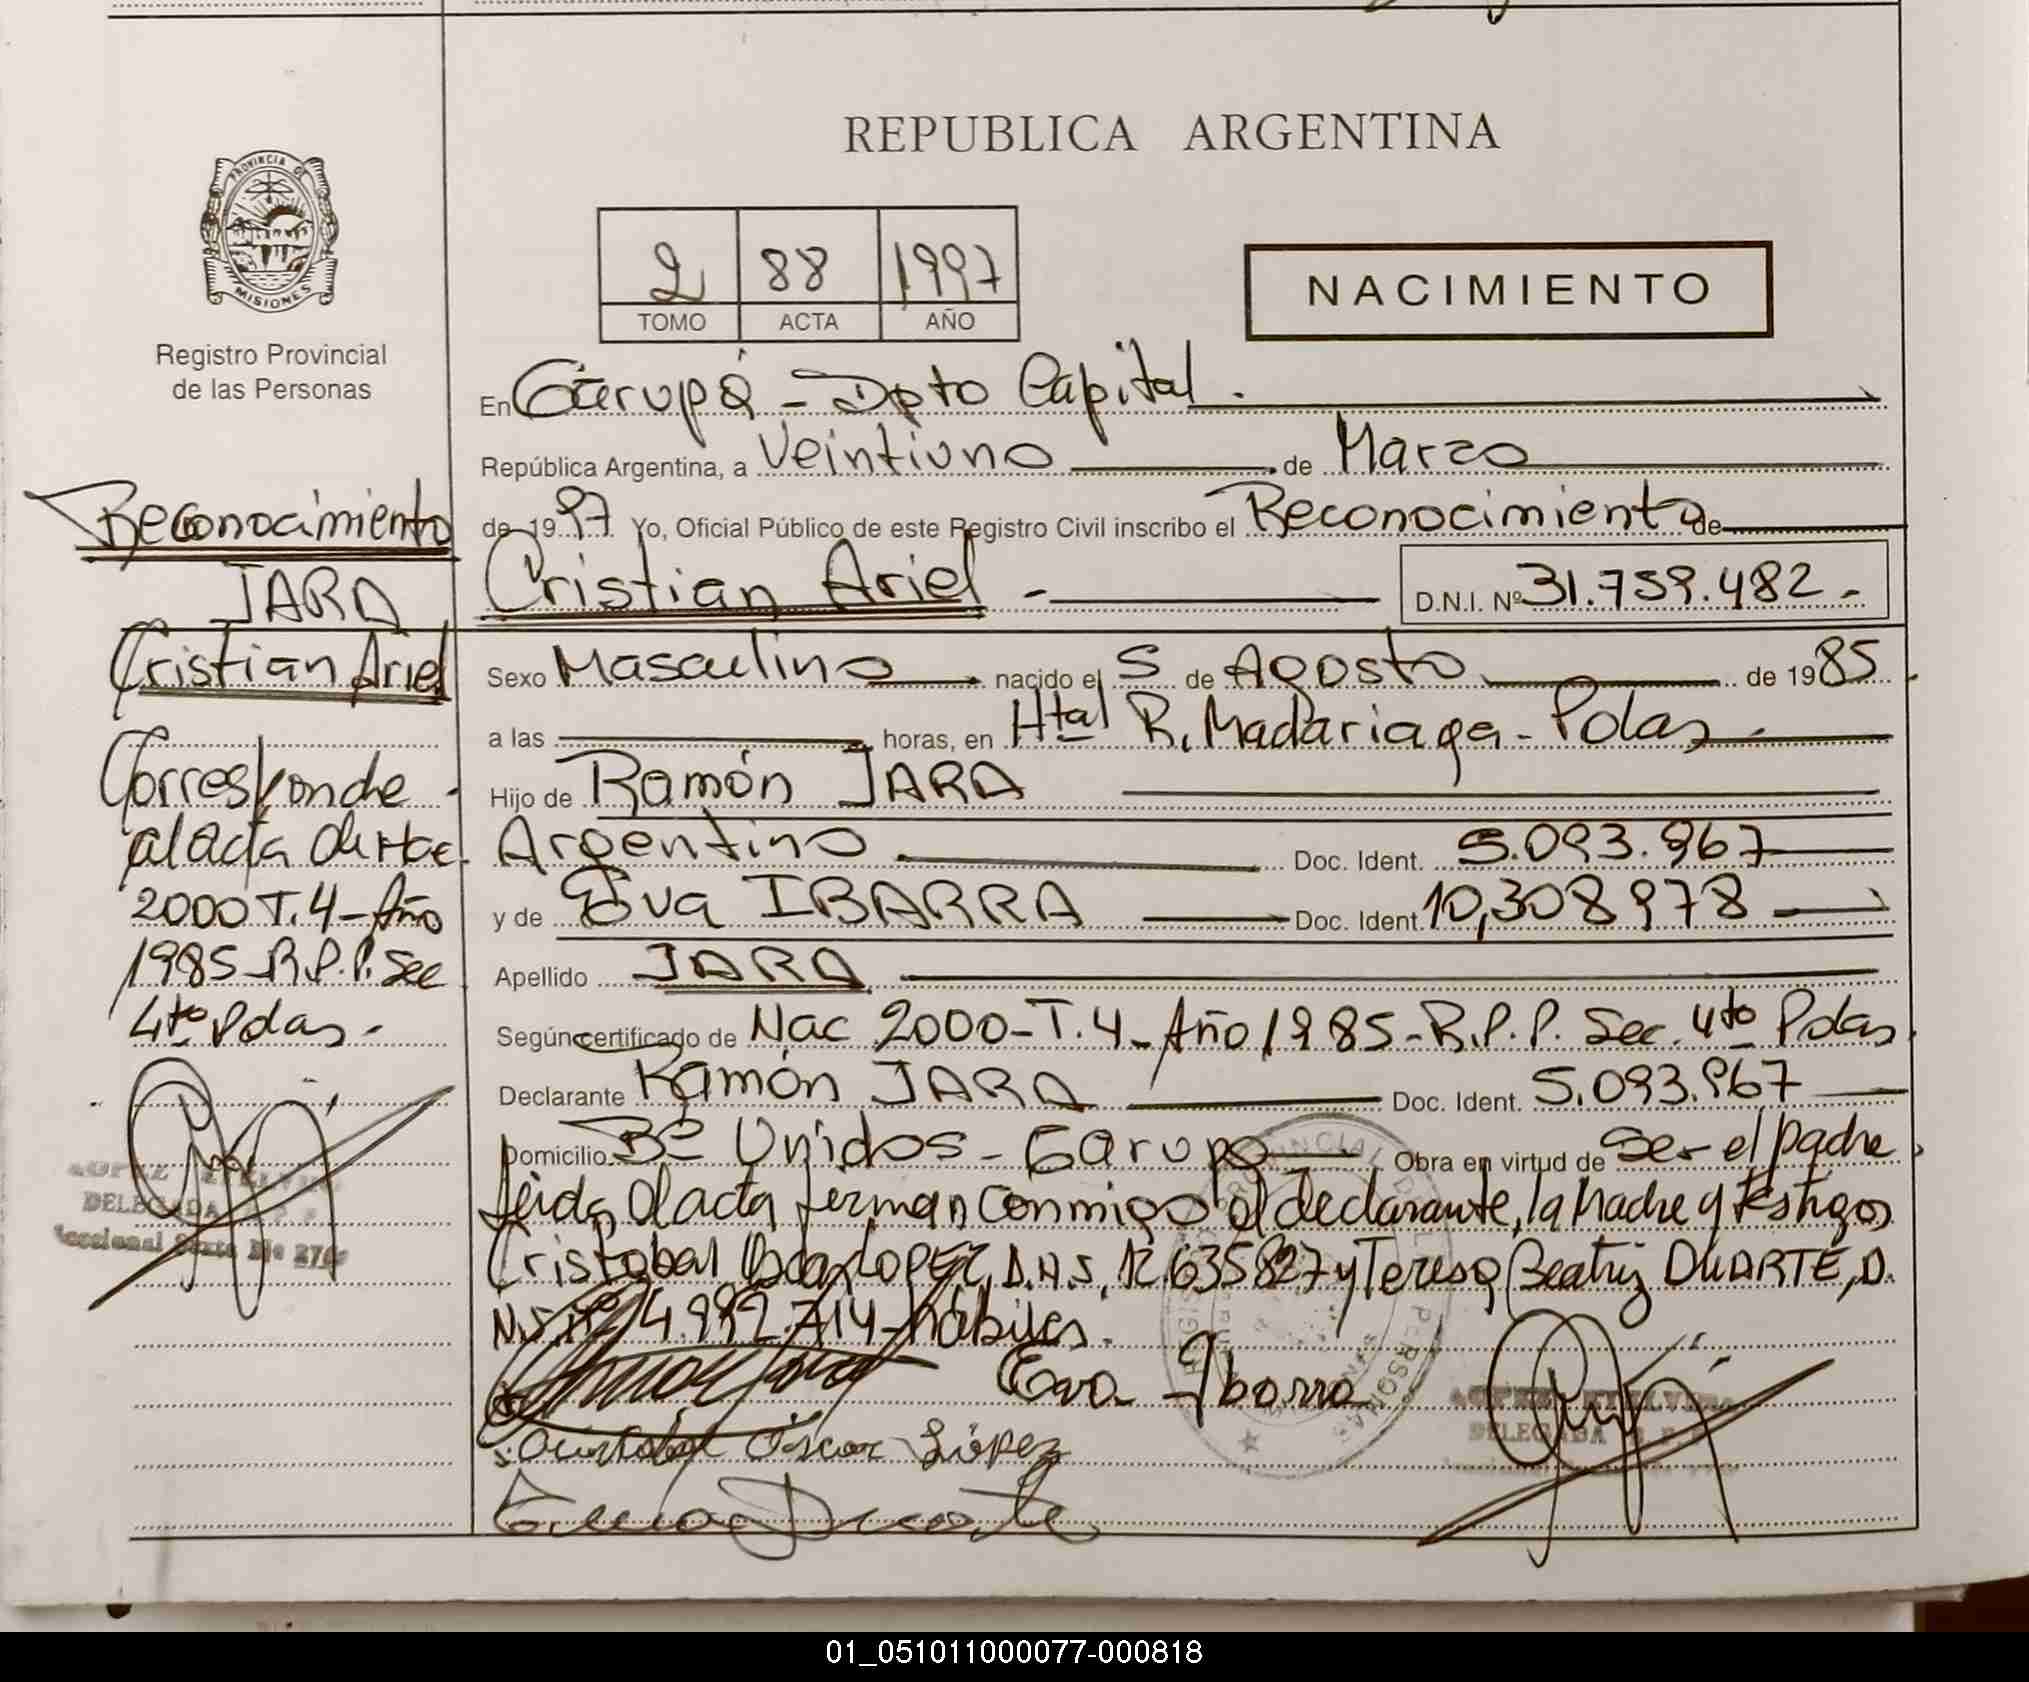 REPUBLICA ARGENTINA
PROVINCIA DE
MISIONES
Registro Provincial
de las Personas
2 88 1997
TOMO ACTA AÑO
NACIMIENTO
En Garupá - Dpto Capital.
República Argentina, a Veintiuno de Marzo
de 1997 Yo, Oficial Público de este Registro Civil inscribo el Reconocimiento de
Cristian Ariel - D.N.I. Nº 31.759.482-
Sexo Masculino nacido el 5 de Agosto de 1985
a las horas, en Htal R. Madariaga - Pdas
Hijo de Ramón JARA
Argentino Doc. Ident. 5.093.967
y de Eva IBARRA Doc. Ident. 10,308978
Apellido JARA
Según certificado de Nac 2000-T.4-Año 1985-R.P.P. Sec. 4to Pdas
Declarante Ramón JARA Doc. Ident. 5.093.967
Domicilio Bº Unidos - Garupa Obra en virtud de Ser el padre
Leida el acta firman conmigo el declarante, la Madre y testigos
Cristobal Oscar LOPEZ, D.N.I. 12.635827 y Teresa Beatriz DUARTE, D.
N.I. Nº 14.992.714-hábiles.
Eva Ibarra
Cristobal Oscar López
Duarte
Reconocimiento
JARA
Cristian Ariel
Corresponde
al acta de Nac.
2000 T.4-Año
1985-R.P.P. Sec
4to Pdas.
LOPEZ ETELVINA
DELEGADA R.P.P.
Seccional Sexta
LOPEZ ETELVINA
DELEGADA R.P.P.
01_051011000077-000818